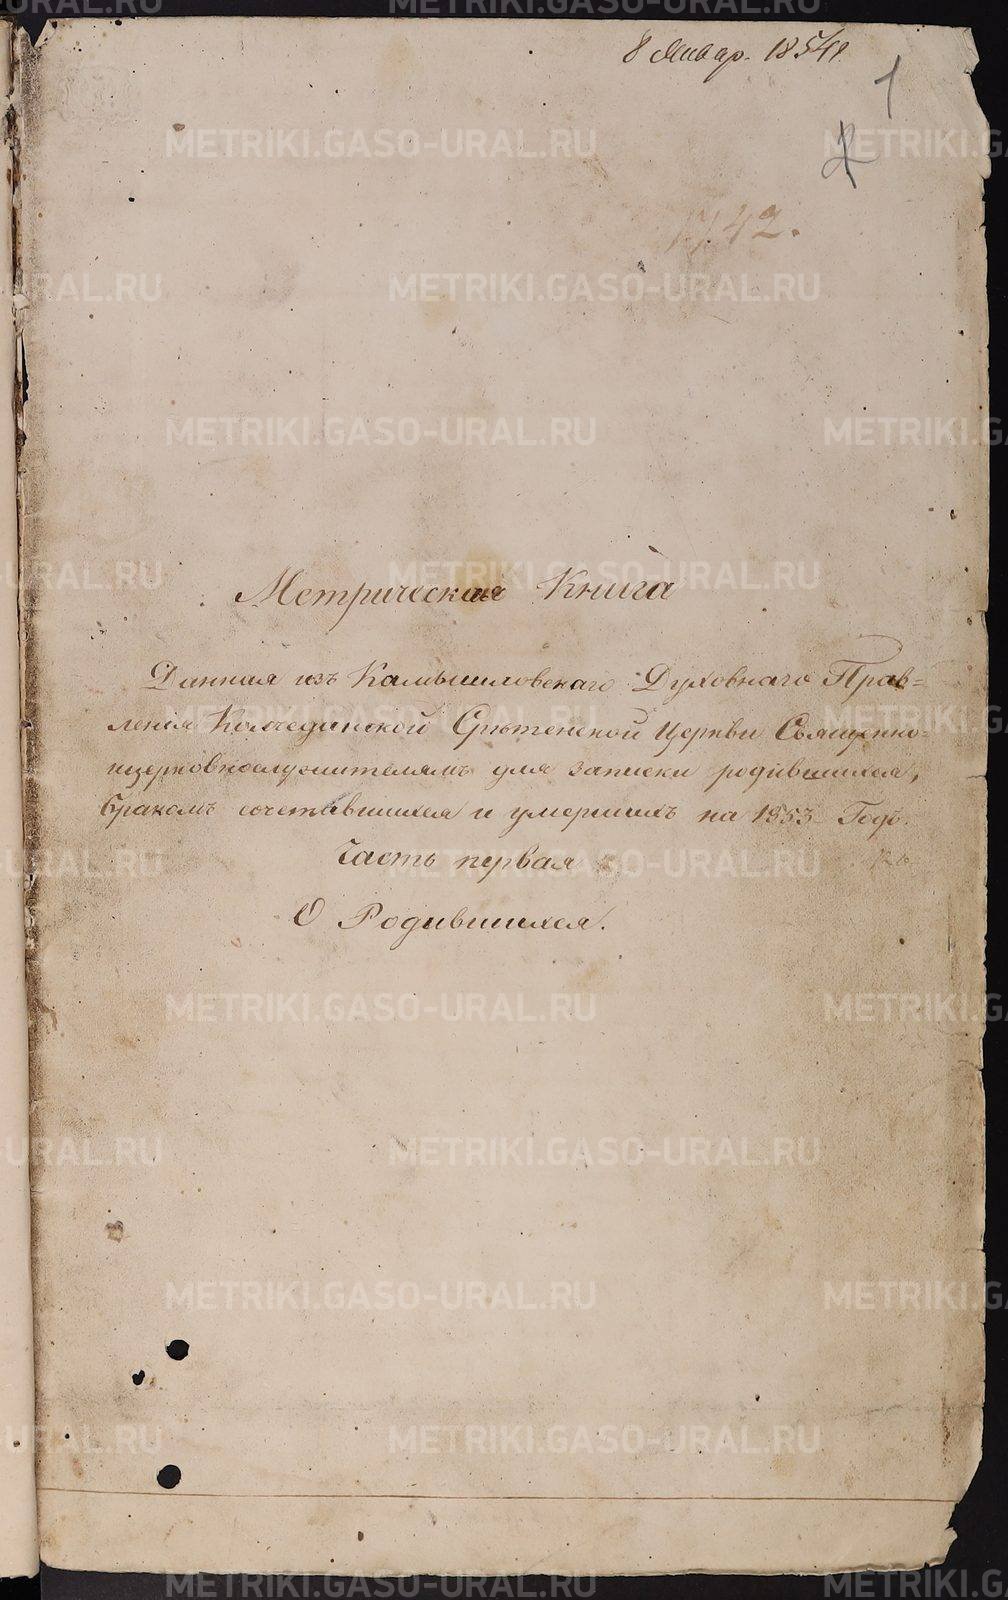 8 Январ. 1854
1
2
1742.
Метрическая Книга
Данная изъ Камышловскаго Духовнаго Прав=
ленія Колчеданской Срѣтенской Церкви Священно=
ицерковнослужителямъ для записки родившихся,
бракомъ сочетавшихся и умершихъ на 1853 Годъ.
Часть первая
О Родившихся.
METRIKI.GASO-URAL.RU